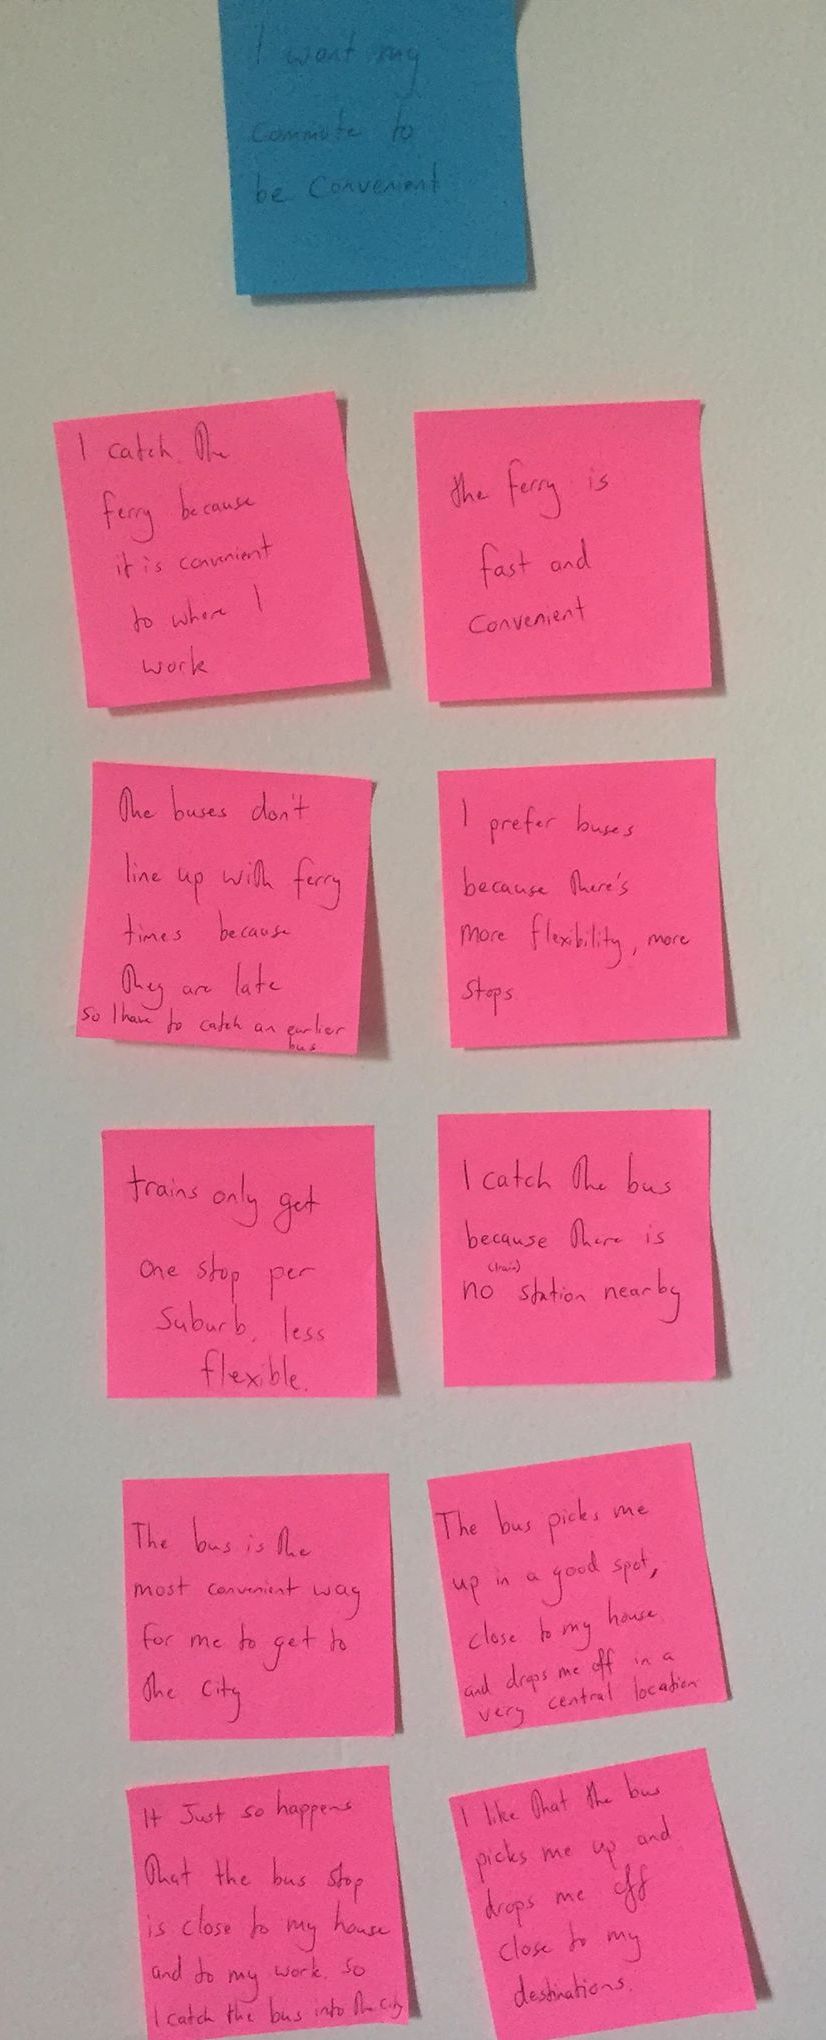 I want my
commute to
be convenient
I catch the
ferry because
it is convenient
to where I
work
the ferry is
fast and
convenient
The buses don't
line up with ferry
times because
they are late
so I have to catch an earlier
bus
I prefer buses
because there's
more flexibility, more
stops
trains only get
one stop per
suburb, less
flexible.
I catch the bus
because there is
(train)
no station nearby
The bus is the
most convenient way
for me to get to
the city
The bus picks me
up in a good spot,
close to my house
and drops me off in a
very central location
It just so happens
that the bus stop
is close to my house
and to my work. so
I catch the bus into the city
I like that the bus
picks me up and
drops me off
close to my
destinations.